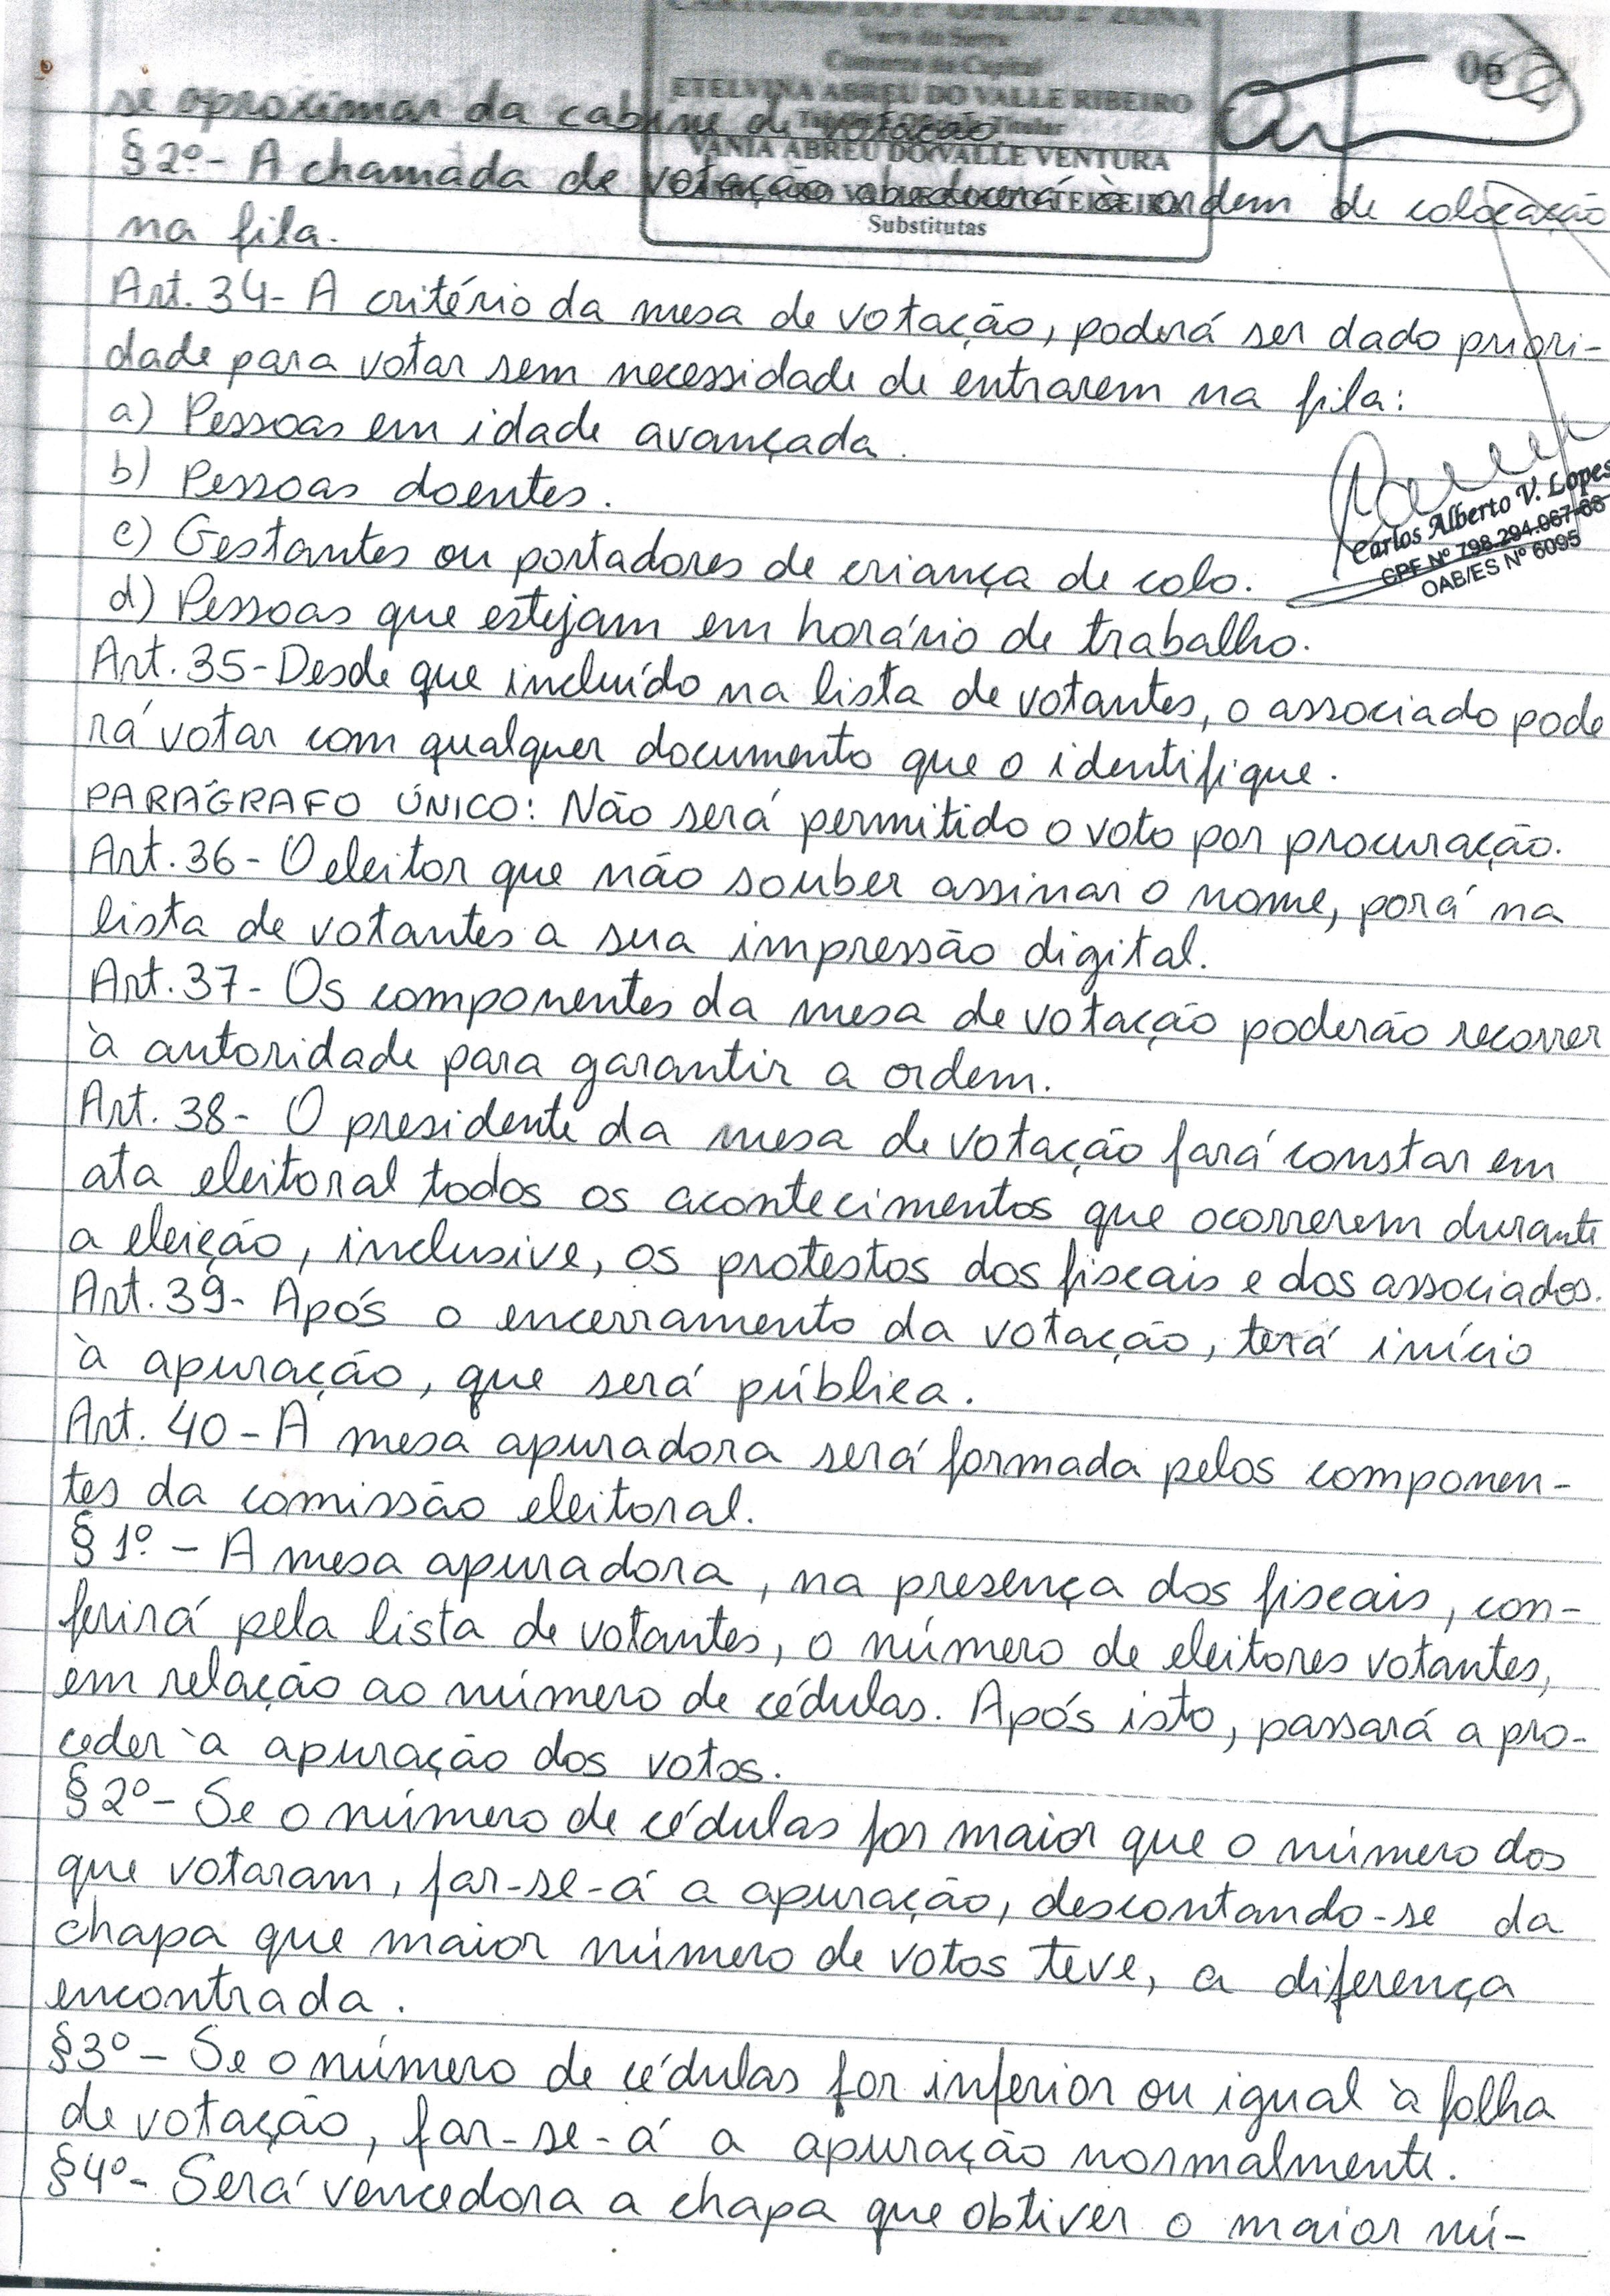 CARTÓRIO DO 1º OFÍCIO 2ª ZONA
Vara da Serra
Comarca da Capital
ETELVINA ABREU DO VALLE RIBEIRO
Titular
VANIA ABREU DO VALLE VENTURA
TEIXEIRA
Substitutas
06
se aproximar da cabine de votação.
§ 2º - A chamada de votação obedecerá à ordem de colocação
na fila.
Art. 34 - A critério da mesa de votação, poderá ser dado priori-
dade para votar sem necessidade de entrarem na fila:
a) Pessoas em idade avançada.
b) Pessoas doentes.
c) Gestantes ou portadores de criança de colo.
d) Pessoas que estejam em horário de trabalho.
Carlos Alberto V. Lopes
CPF Nº 798.294.067-68
OAB/ES Nº 6095
Art. 35 - Desde que incluído na lista de votantes, o associado pode
rá votar com qualquer documento que o identifique.
PARÁGRAFO ÚNICO: Não será permitido o voto por procuração.
Art. 36 - O eleitor que não souber assinar o nome, porá na
lista de votantes a sua impressão digital.
Art. 37 - Os componentes da mesa de votação poderão recorrer
à autoridade para garantir a ordem.
Art. 38 - O presidente da mesa de votação fará constar em
ata eleitoral todos os acontecimentos que ocorrerem durante
a eleição, inclusive, os protestos dos fiscais e dos associados.
Art. 39 - Após o encerramento da votação, terá início
à apuração, que será pública.
Art. 40 - A mesa apuradora será formada pelos componen-
tes da comissão eleitoral.
§ 1º - A mesa apuradora, na presença dos fiscais, con-
ferirá pela lista de votantes, o número de eleitores votantes,
em relação ao número de cédulas. Após isto, passará a pro-
ceder à apuração dos votos.
§ 2º - Se o número de cédulas for maior que o número dos
que votaram, far-se-á a apuração, descontando-se da
chapa que maior número de votos teve, a diferença
encontrada.
§ 3º - Se o número de cédulas for inferior ou igual à folha
de votação, far-se-á a apuração normalmente.
§ 4º - Será vencedora a chapa que obtiver o maior nú-